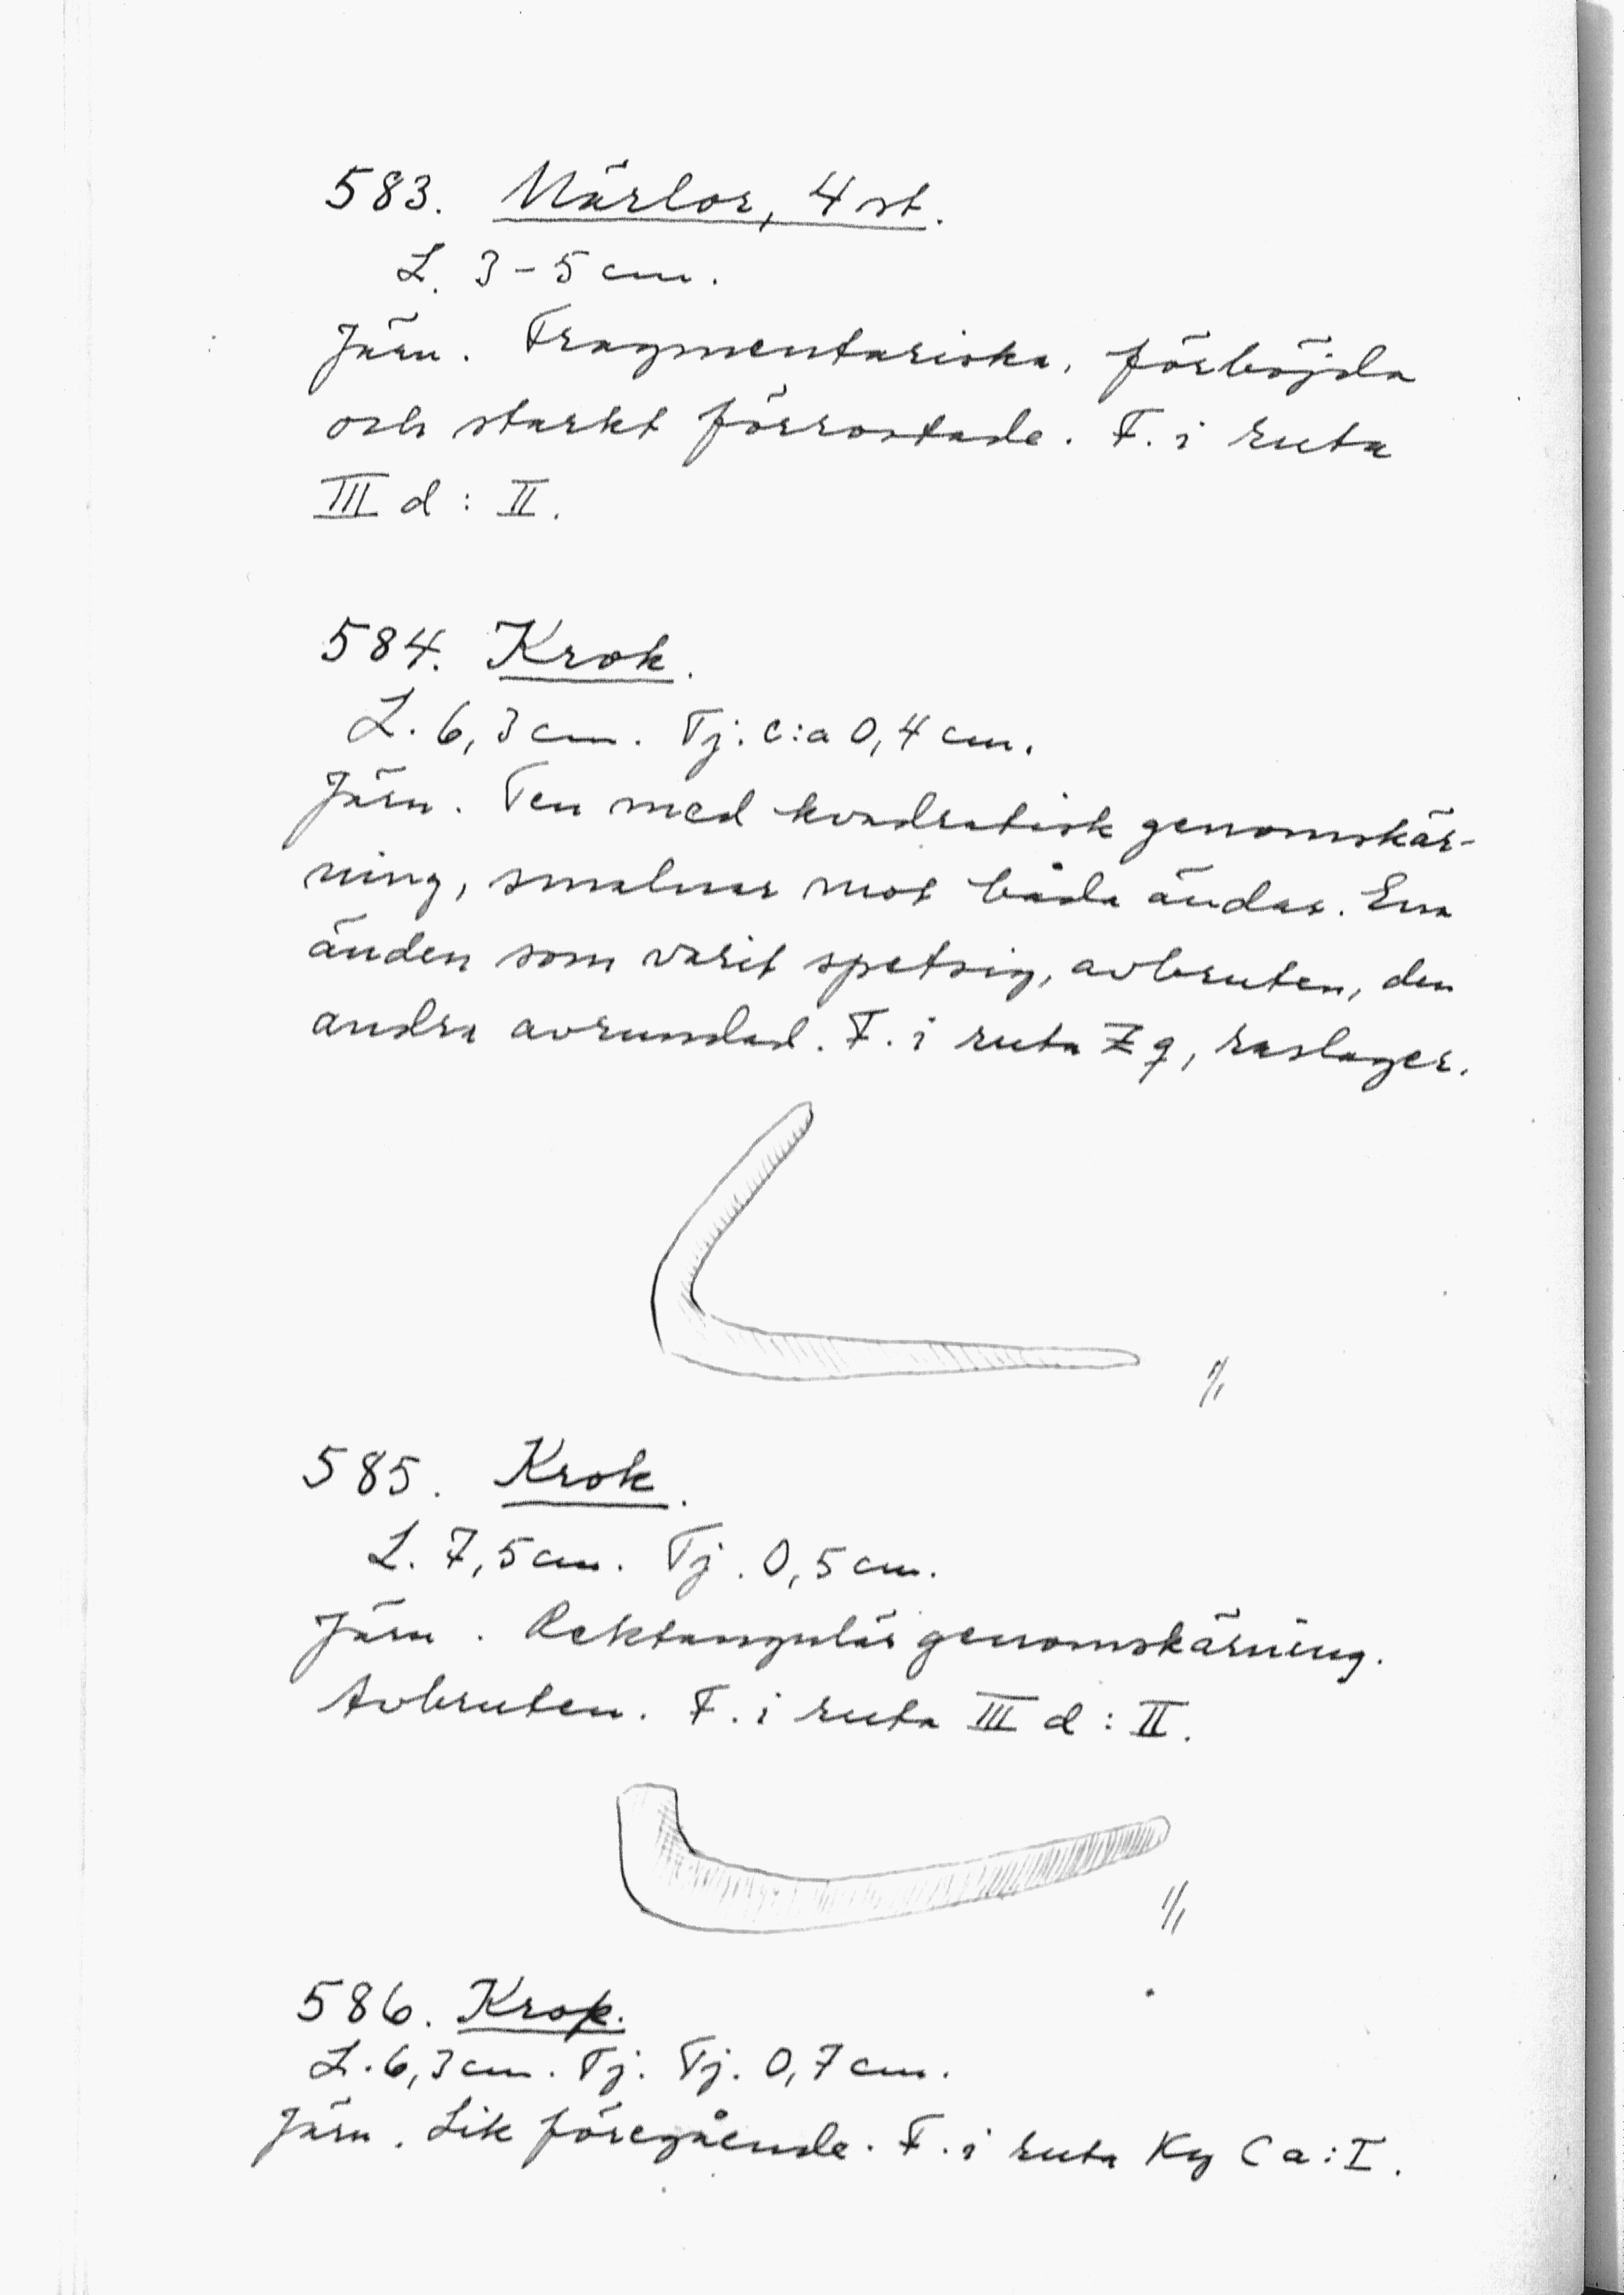 583. Märlor, 4 st.
L. 3-5 cm.
Järn. Fragmentariska, förböjda
och starkt förrostade. F. i ruta
III d : II.
584. Krok.
L. 6,3 cm. Tj. c:a 0,4 cm.
Järn. Ten med kvadratisk genomskär-
ning, smalnar mot båda ändar. Ena
änden som varit spetsig, avbruten, den
andra avrundad. F. i ruta Z q, raslager.
1/1
585. Krok.
L. 7,5 cm. Tj. 0,5 cm.
Järn. Rektangulär genomskärning.
Avbruten. F. i ruta III d : II.
1/1
586. Krok.
L. 6,3 cm. Tj. Tj. 0,7 cm.
Järn. Lik föregående. F. i ruta Ky C a : I.